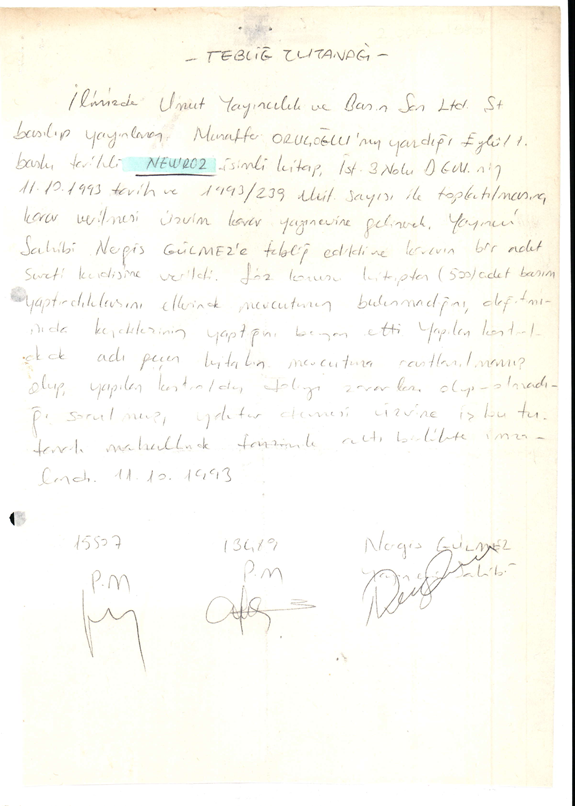 - TEBLİĞ TUTANAĞI -
İlimizde Umut Yayıncılık ve Basın San Ltd. Şt
basılıp yayınlanan, Muzaffer ORUÇOĞLU'nun yazdığı Eylül 1.
baskı tarihli NEWROZ isimli kitap, İst. 3 Nolu DGM.nin
11.10.1993 tarih ve 1993/239 Müt. sayısı ile toplatılmasına
karar verilmesi üzerine karar yayınevine gelinerek, Yayınevi
Sahibi Nagis GÜLMEZ'e tebliğ edildi ve kararın bir adet
sureti kendisine verildi. Söz konusu kitaptan (500) adet basım
yaptırdıklarını ellerinde mevcutunun bulunmadığını, dağıtımı-
nıda kendilerinin yaptığını beyan etti Yapılan kontrol-
de adı geçen kitabın mevcutuna rastlanılmamış
olup, yapılan kontrolden dolayı zararları olup-olmadı-
ğı sorulmuş, yoktur demesi üzerine iş bu tu-
tanak mahallinde tanzimle altı birlikte imza-
landı. 11.10.1993
15507 13419 Nagis GÜLMEZ
P.M P.M Yayınevi Sahibi